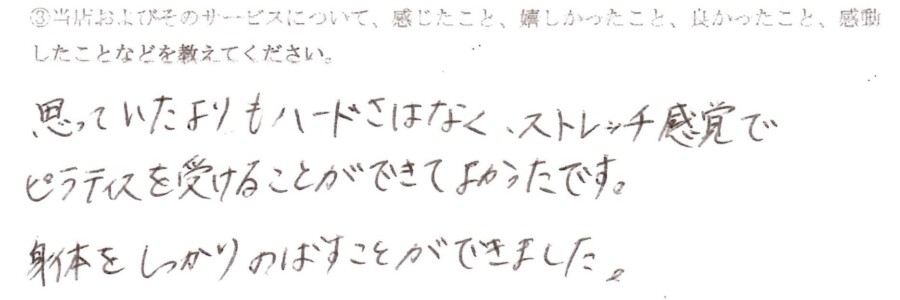 ③当店およびそのサービスについて、感じたこと、嬉しかったこと、良かったこと、感動
したことなどを教えてください。
思っていたよりもハードさはなく、ストレッチ感覚で
ピラティスを受けることができてよかったです。
身体をしっかりのばすことができました。